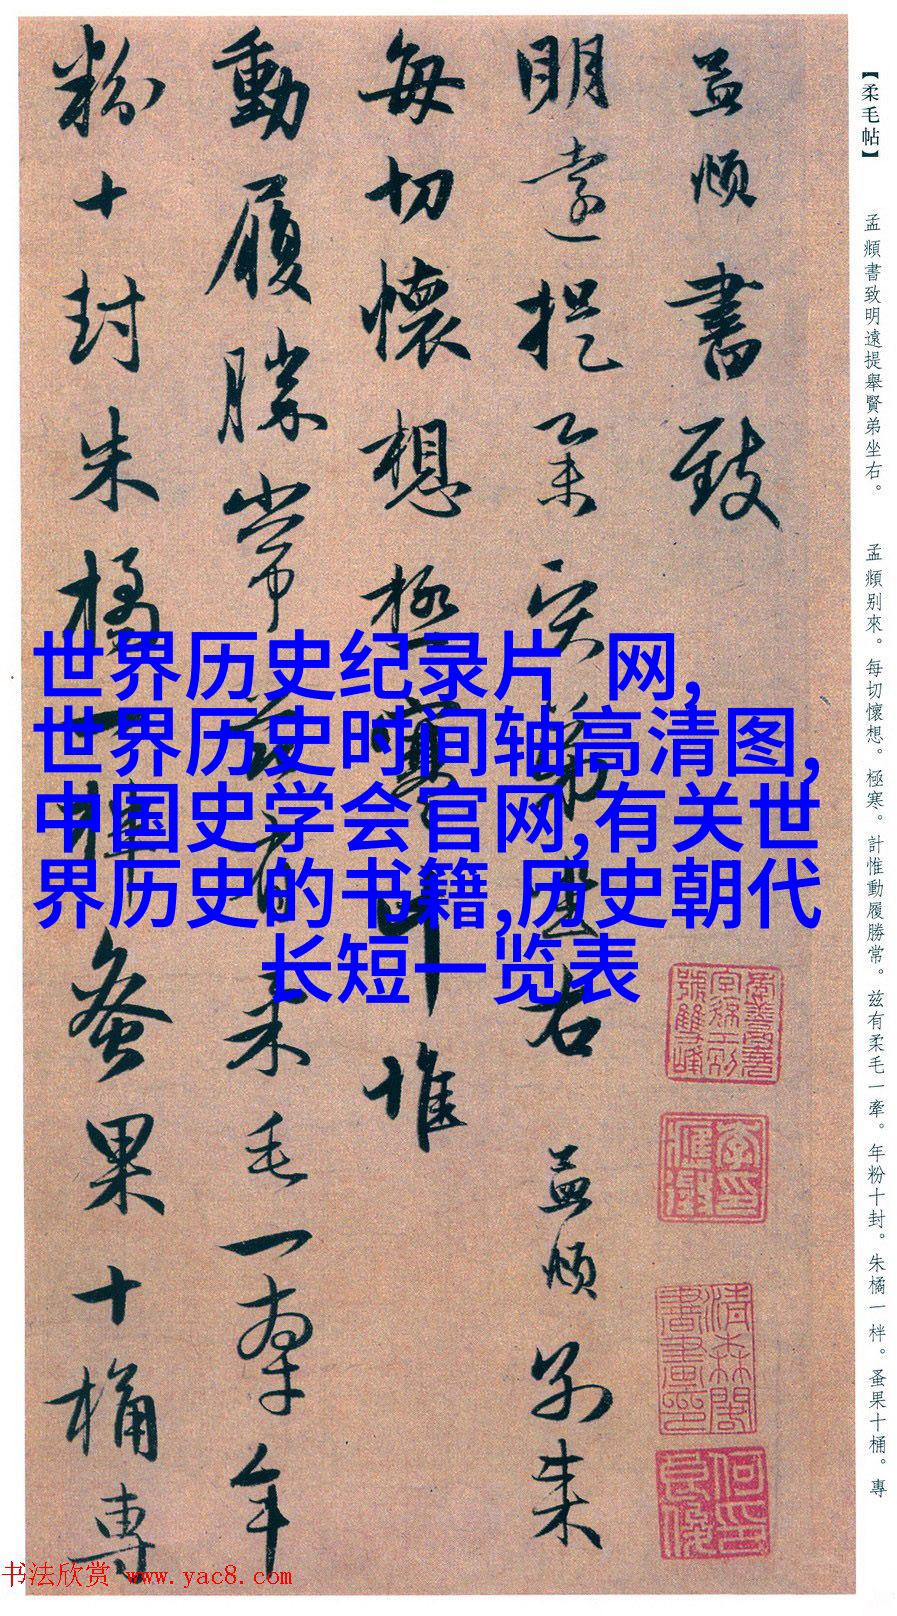 【柔毛帖】
孟頫書致明遠提舉賢弟坐右。
孟頫别來。每切懷想。極寒。計惟動履勝常。兹有柔毛一牽。年粉十封。朱橘一柈。蚤果十桶。專
孟頫書致
明遠提舉賢弟坐右 孟頫别来
每切懷想極寒計惟
動履勝常兹有柔毛一牽年
粉十封朱橘一柈蚤果十桶專
世界历史纪录片 网,
世界历史时间轴高清图,
中国史学会官网,有关世
界历史的书籍,历史朝代
长短一览表
书法欣赏 www.yac8.com